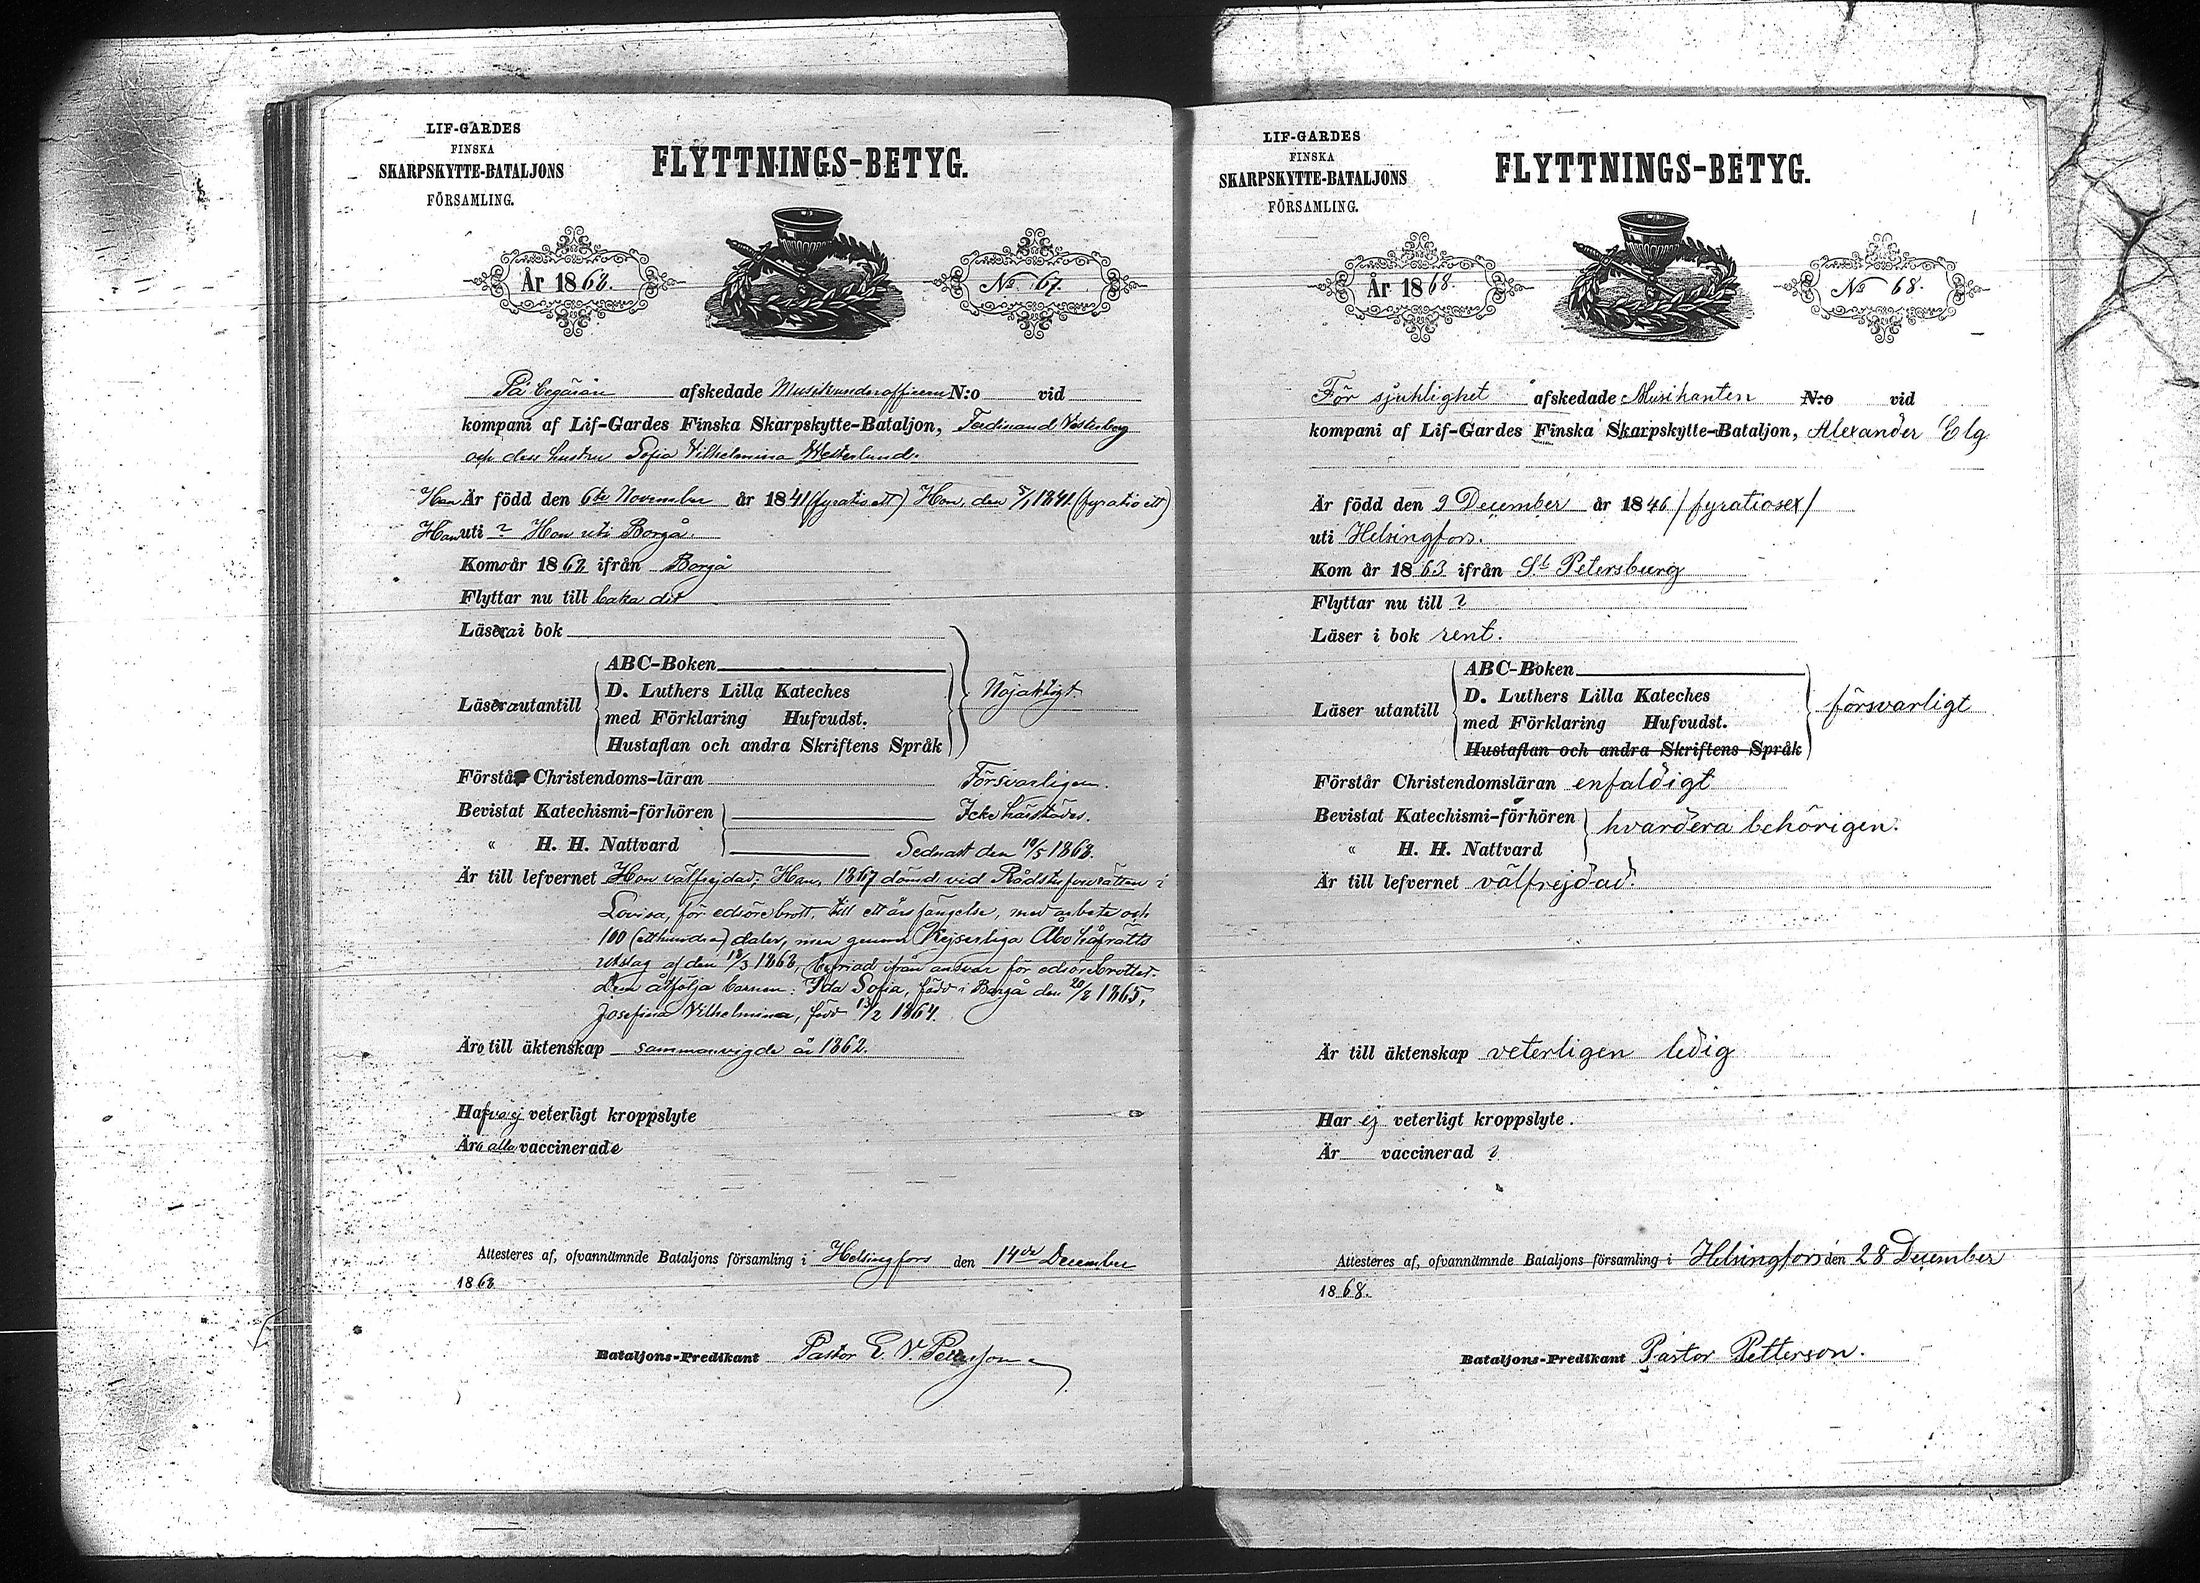 LIF-GARDES
FINSKA
SKARPSKYTTE-BATALJONS
FÖRSAMLING.
FLYTTNINGS-BETYG.
År 1868.
No 67.
På begäran afskedade Musikunderofficern N:o vid
kompani af Lif-Gardes Finska Skarpskytte-Bataljon, Ferdinand Vesterberg
och dess hustru Sofia Vilhelmina Westerlund.
Han Är född den 6te November år 1841 (fyratioett) Hon, den 5/1 1841 (fyratioett)
Han uti ? Hon uti Borgå.
Komo år 1862 ifrån Borgå
Flyttar nu till baka dit
Läsa i bok
Läsa utantill
ABC-Boken
D. Luthers Lilla Kateches
med Förklaring Hufvudst.
Hustaflan och andra Skriftens Språk
Nöjaktigt
Förstå Christendoms-läran Försvarligen.
Bevistat Katechismi-förhören Icke härstädes.
" H. H. Nattvard Sednast den 10/5 1868.
Är till lefvernet Hon välfrejdad; Han, 1867 dömd vid Rådstufvurätten i
Lovisa, för edsöre brott, till ett års fängelse, med arbete och
100 (etthundra) daler, men genom Kejserliga Åbo Håfrätts
utslag af den 18/3 1868, befriad ifrån ansvar för edsörebrottet.
Dem åtfölja barnen: Ida Sofia, född i Borgå den 20/2 1865,
Josefina Vilhelmina, född 13/2 1864.
Äro till äktenskap sammanvigde år 1862.
Hafva ej veterligt kroppslyte
Äro alla vaccinerade
Attesteres af, ofvannämnde Bataljons församling i Helsingfors den 14de December
1868
Bataljons-Predikant Pastor E. V. Petterson
LIF-GARDES
FINSKA
SKARPSKYTTE-BATALJONS
FÖRSAMLING.
FLYTTNINGS-BETYG.
År 1868.
No 68.
För sjuklighet afskedade Musikanten N:o vid
kompani af Lif-Gardes Finska Skarpskytte-Bataljon, Alexander Elg
Är född den 9 December år 1846 / fyratiosex /
uti Helsingfors.
Kom år 1863 ifrån St Petersburg
Flyttar nu till ?
Läser i bok rent.
Läser utantill
ABC-Boken
D. Luthers Lilla Kateches
med Förklaring Hufvudst.
Hustaflan och andra Skriftens Språk
försvarligt
Förstår Christendomsläran enfaldigt
Bevistat Katechismi-förhören
" H. H. Nattvard
hvardera behörigen.
Är till lefvernet välfrejdad.
Är till äktenskap veterligen ledig
Har ej veterligt kroppslyte.
Är vaccinerad ?
Attesteres af, ofvannämnde Bataljons församling i Helsingfors den 28 December
1868.
Bataljons-Predikant Pastor Petterson.